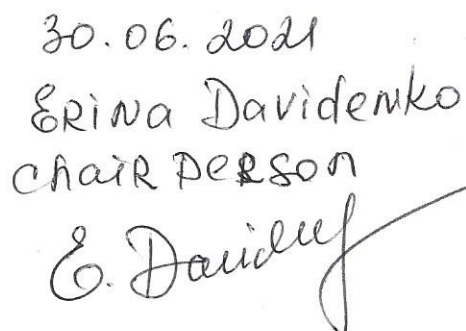 30.06.2021
ERiNa Davidenko
chaiR PeRson
E. David